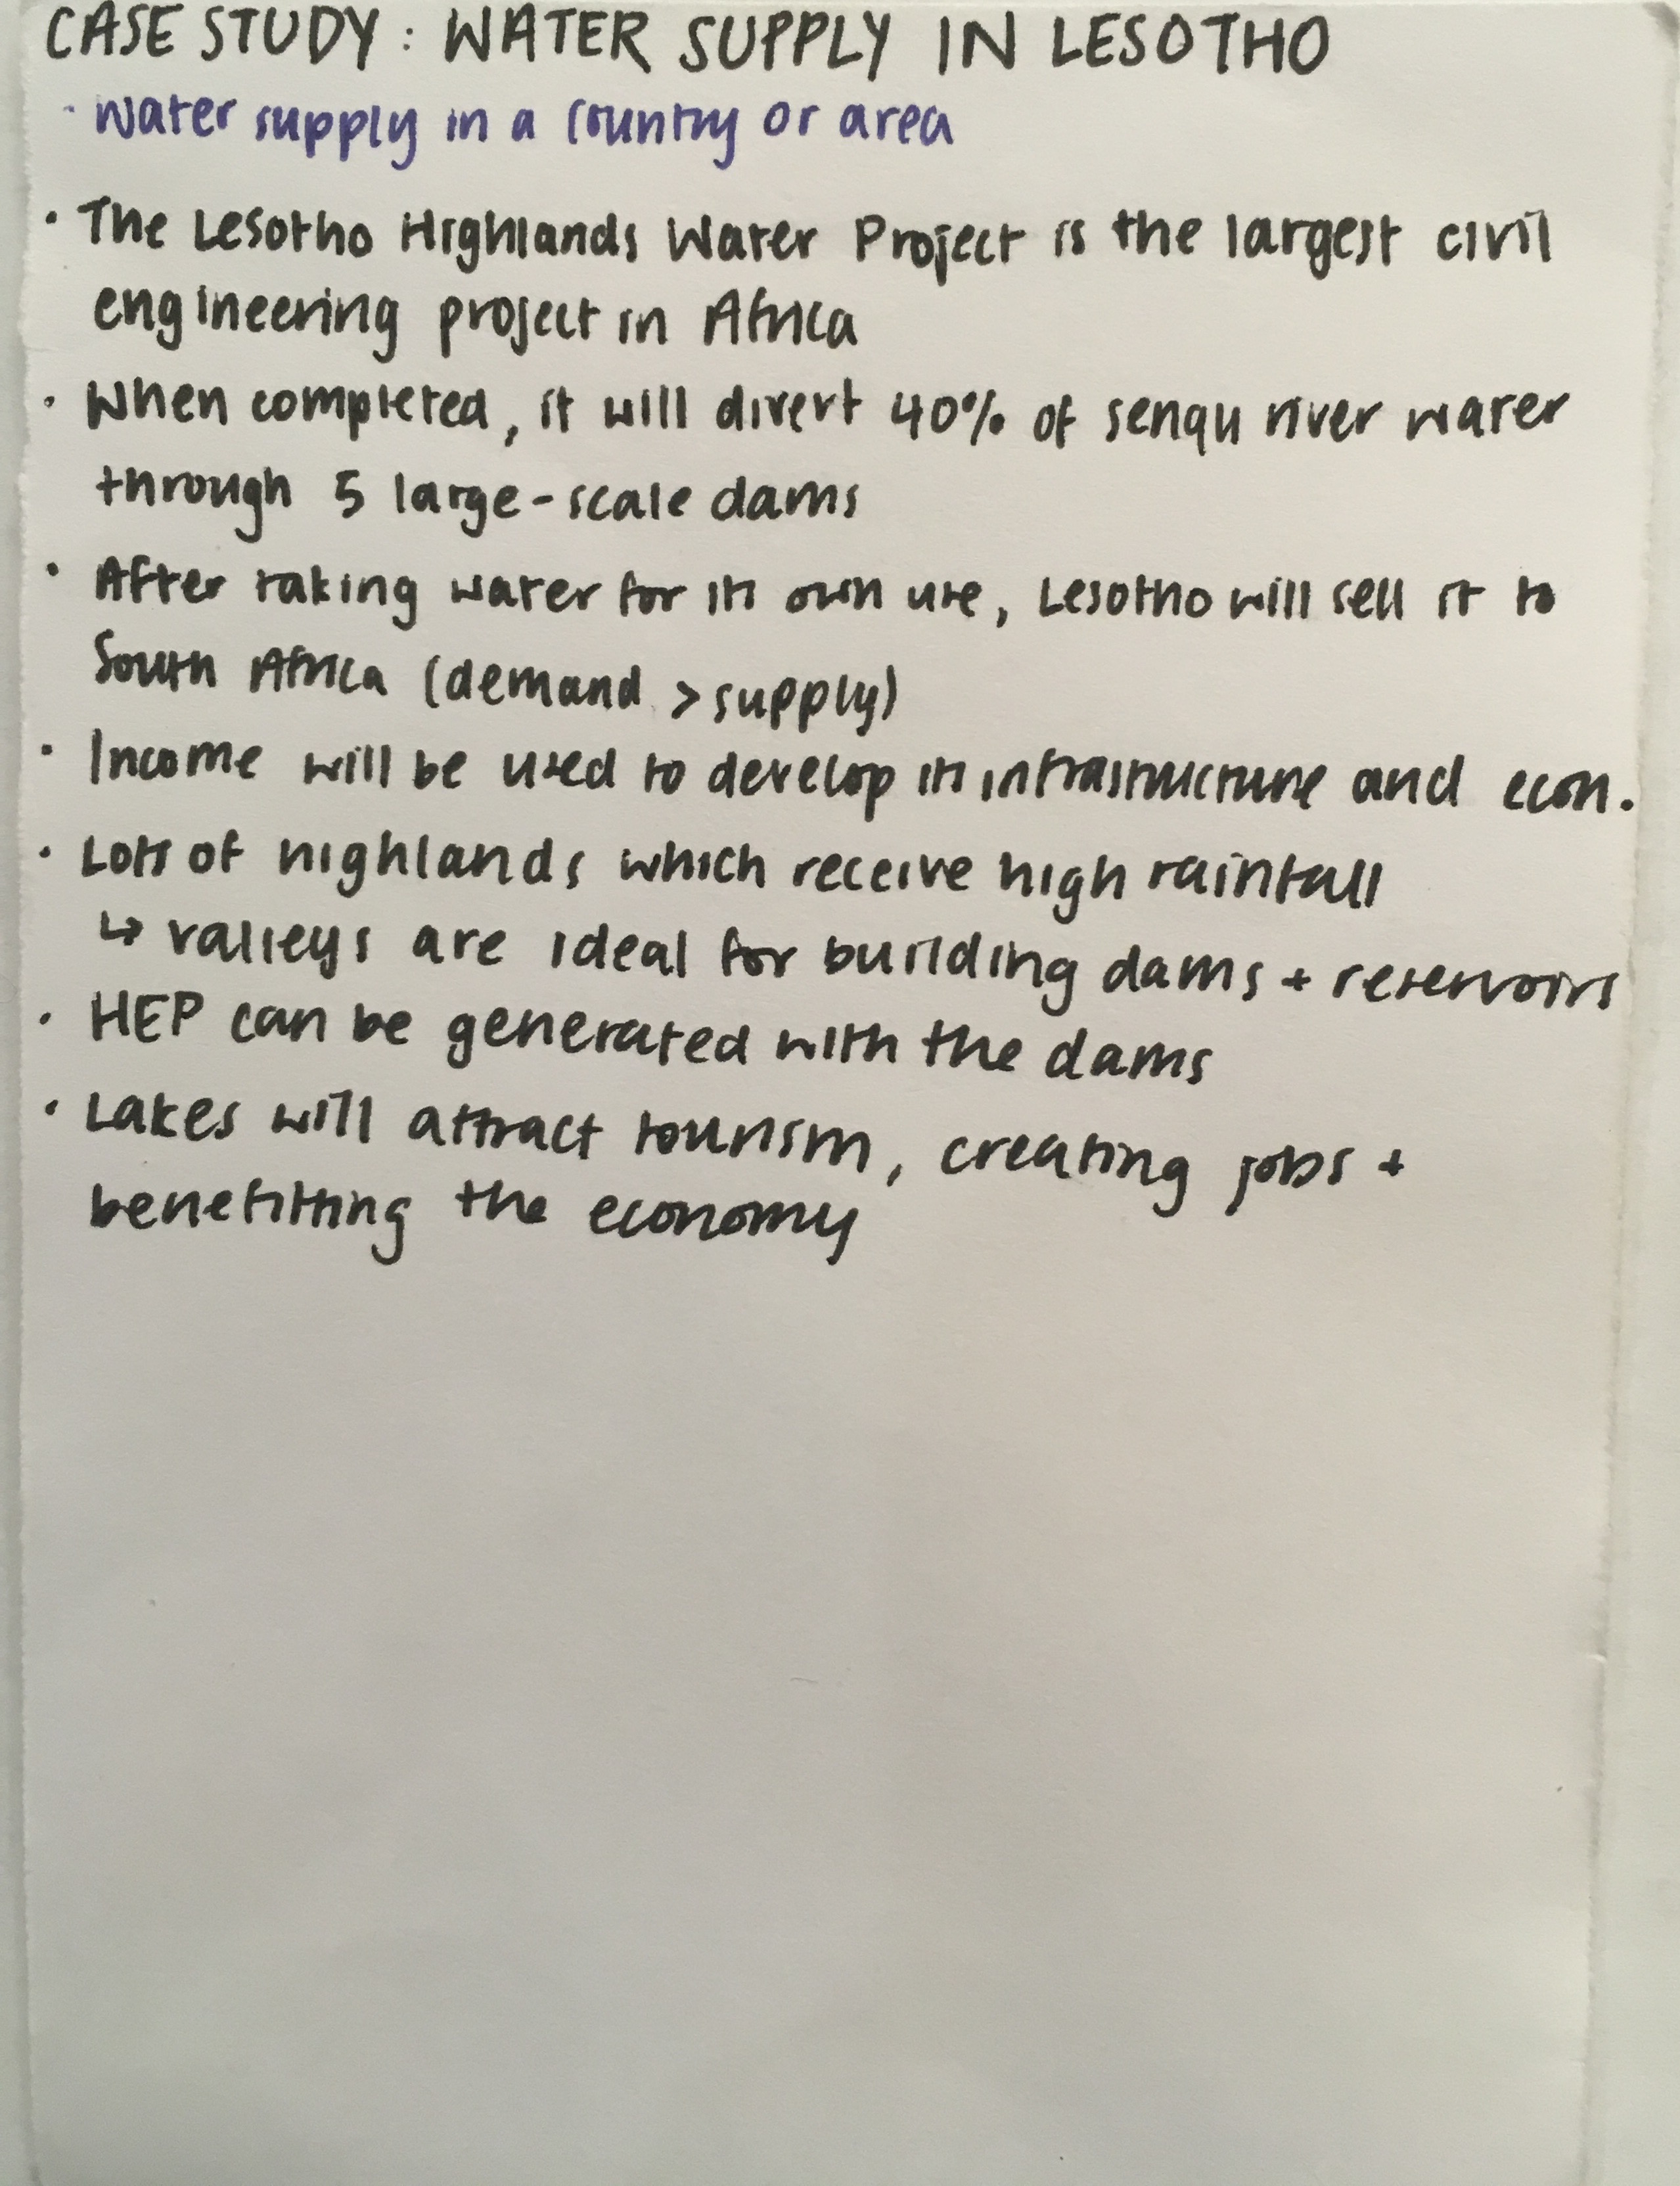 CASE STUDY : WATER SUPPLY IN LESOTHO
· Water supply in a country or area
· The Lesotho Highlands Water Project is the largest civil
engineering project in Africa
· When completed, it will divert 40% of senqu river water
through 5 large-scale dams
· After taking water for its own use, Lesotho will sell it to
South Africa (demand > supply)
· Income will be used to develop its infrastructure and econ.
· Lots of highlands which receive high rainfall
↳ valleys are ideal for building dams + reservoirs
· HEP can be generated with the dams
· Lakes will attract tourism, creating jobs +
benefitting the economy